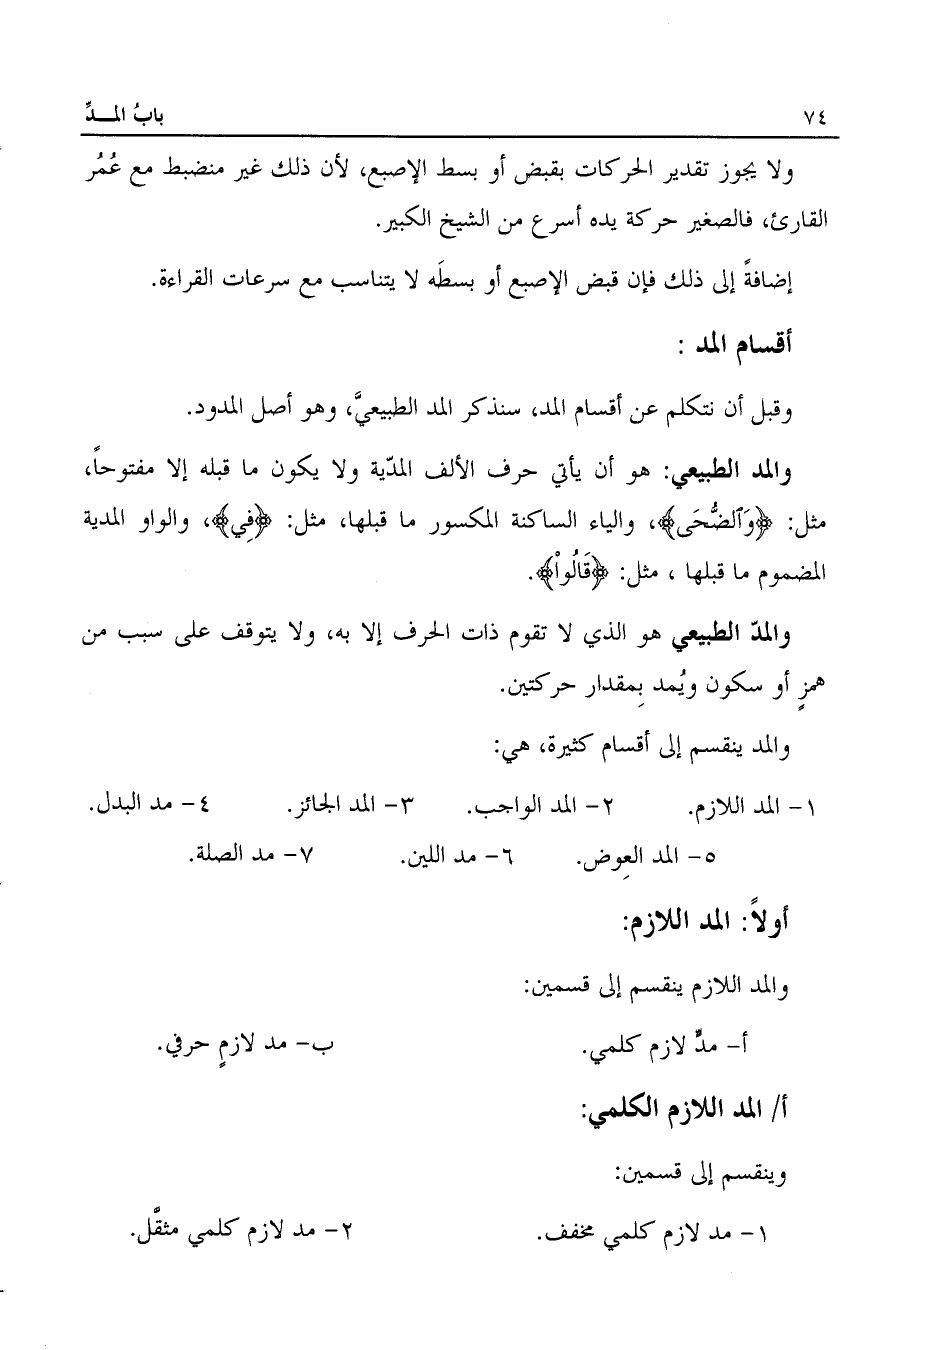 ٧٤ بابُ المـــدِّ
ولا يجوز تقدير الحركات بقبض أو بسط الإصبع، لأن ذلك غير منضبط مع عُمُر
القارئ، فالصغير حركة يده أسرع من الشيخ الكبير.
إضافةً إلى ذلك فإن قبض الإصبع أو بسطَه لا يتناسب مع سرعات القراءة.
أقسام المد :
وقبل أن نتكلم عن أقسام المد، سنذكر المد الطبيعيَّ، وهو أصل المدود.
والمد الطبيعي: هو أن يأتي حرف الألف المدّية ولا يكون ما قبله إلا مفتوحاً،
مثل: ﴿وَٱلضُّحَى﴾، والياء الساكنة المكسور ما قبلها، مثل: ﴿فِي﴾، والواو المدية
المضموم ما قبلها ، مثل: ﴿قَالُواْ﴾.
والمدّ الطبيعي هو الذي لا تقوم ذات الحرف إلا به، ولا يتوقف على سبب من
همزٍ أو سكون ويُمد بِمقدار حركتين.
والمد ينقسم إلى أقسام كثيرة، هي:
١- المد اللازم. ٢- المد الواجب. ٣- المد الجائز. ٤- مد البدل.
٥- المد العِوض. ٦- مد اللين. ٧- مد الصلة.
أولاً: المد اللازم:
والمد اللازم ينقسم إلى قسمين:
أ- مدٌّ لازم كلمي. ب- مد لازمٍ حرفي.
أ/ المد اللازم الكلمي:
وينقسم إلى قسمين:
١- مد لازم كلمي مخفف. ٢- مد لازم كلمي مثقَّل.